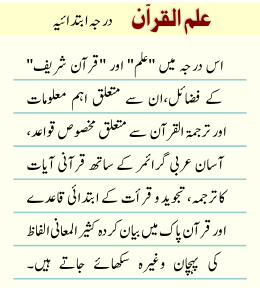 علم القرآن درجہ ابتدائیہ
اس درجہ میں "علم" اور "قرآن شریف"
کے فضائل،ان سے متعلق اہم معلومات
اور ترجمۃ القرآن سے متعلق مخصوص قواعد،
آسان عربی گرائمر کے ساتھ قرآنی آیات
کا ترجمہ، تجوید و قرأت کے ابتدائی قاعدے
اور قرآن پاک میں بیان کردہ کثیر المعانی الفاظ
کی پہچان وغیرہ سکھائے جاتے ہیں۔